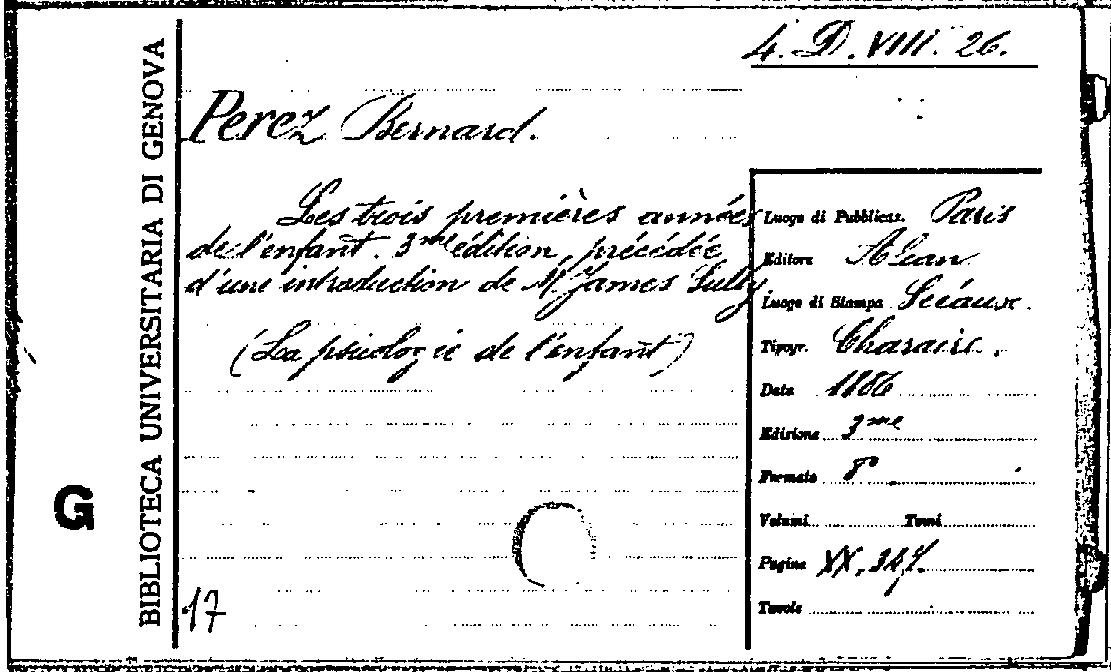 4. D. VIII. 26.
BIBLIOTECA UNIVERSITARIA DI GENOVA
G
Perez Bernard.
Les trois premières années
de l'enfant. 3me édition, précédée
d'une introduction de M. James Sully.
(La psicologie de l'enfant)
17
Luogo di Pubblicaz. Paris
Editore Alcan
Luogo di Stampa Sceaux.
Tipogr. Charaire.
Data 1886
Edizione 3me
Formato 8°
Volumi Tomi
Pagine XX, 347.
Tavole